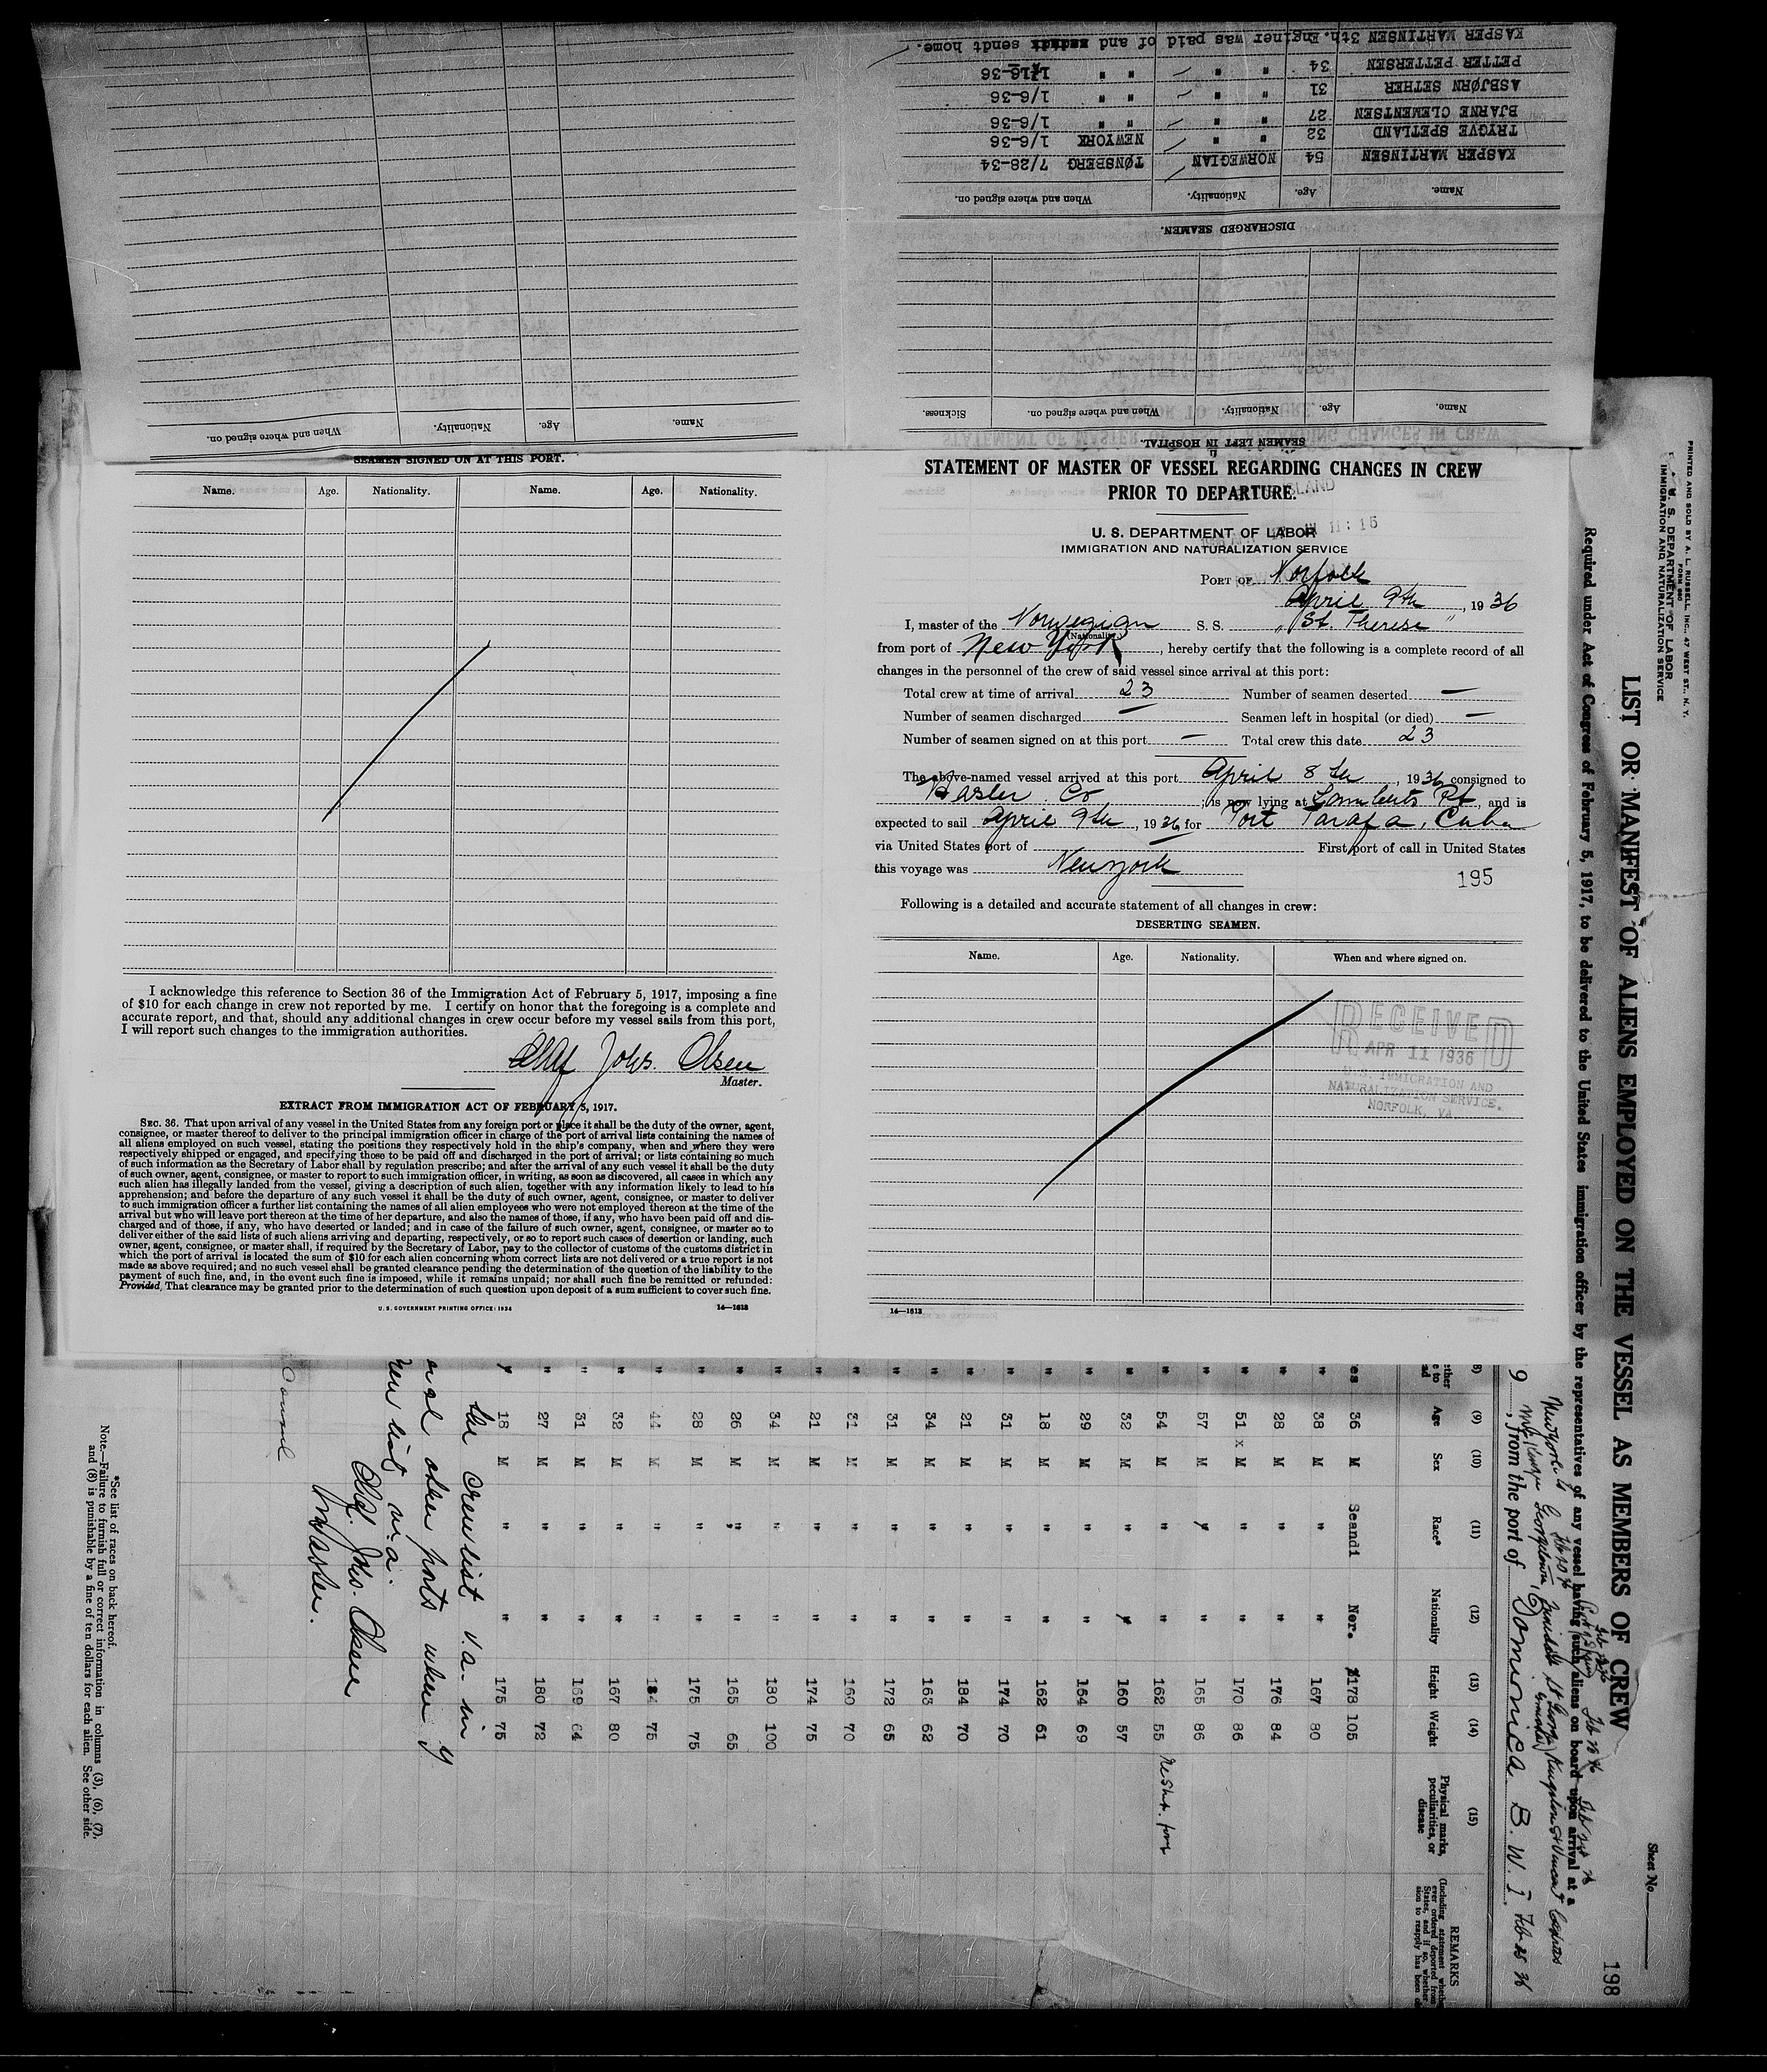 KASPER MARTINSEN 3th. Enginer was paid of and sendt home.
PETTER PETTERSEN 34 " " " " 1/16-36
ASBJØRN SETHER 31 " " " " 1/6-36
BJARNE CLEMENTSEN 27 " " " " 1/6-36
TRYGVE SPETLAND 32 " " NEWYORK 1/6-36
KASPER MARTINSEN 54 NORWEGIAN TØNSBERG 7/28-34
Name. Age. Nationality. When and where signed on.
DISCHARGED SEAMEN.
Name. Age. Nationality. When and where signed on. Sickness.
SEAMEN LEFT IN HOSPITAL.
Name. Age. Nationality. When and where signed on.
SEAMEN SIGNED ON AT THIS PORT.
Name. Age. Nationality. Name. Age. Nationality.
I acknowledge this reference to Section 36 of the Immigration Act of February 5, 1917, imposing a fine
of $10 for each change in crew not reported by me. I certify on honor that the foregoing is a complete and
accurate report, and that, should any additional changes in crew occur before my vessel sails from this port,
I will report such changes to the immigration authorities.
Olaf Johs. Olsen
Master.
EXTRACT FROM IMMIGRATION ACT OF FEBRUARY 5, 1917.
SEC. 36. That upon arrival of any vessel in the United States from any foreign port or place it shall be the duty of the owner, agent,
consignee, or master thereof to deliver to the principal immigration officer in charge of the port of arrival lists containing the names of
all aliens employed on such vessel, stating the positions they respectively hold in the ship's company, when and where they were
respectively shipped or engaged, and specifying those to be paid off and discharged in the port of arrival; or lists containing so much
of such information as the Secretary of Labor shall by regulation prescribe; and after the arrival of any such vessel it shall be the duty
of such owner, agent, consignee, or master to report to such immigration officer, in writing, as soon as discovered, all cases in which any
such alien has illegally landed from the vessel, giving a description of such alien, together with any information likely to lead to his
apprehension; and before the departure of any such vessel it shall be the duty of such owner, agent, consignee, or master to deliver
to such immigration officer a further list containing the names of all alien employees who were not employed thereon at the time of the
arrival but who will leave port thereon at the time of her departure, and also the names of those, if any, who have been paid off and dis-
charged and of those, if any, who have deserted or landed; and in case of the failure of such owner, agent, consignee, or master so to
deliver either of the said lists of such aliens arriving and departing, respectively, or so to report such cases of desertion or landing, such
owner, agent, consignee, or master shall, if required by the Secretary of Labor, pay to the collector of customs of the customs district in
which the port of arrival is located the sum of $10 for each alien concerning whom correct lists are not delivered or a true report is not
made as above required; and no such vessel shall be granted clearance pending the determination of the question of the liability to the
payment of such fine, and, in the event such fine is imposed, while it remains unpaid; nor shall such fine be remitted or refunded:
Provided, That clearance may be granted prior to the determination of such question upon deposit of a sum sufficient to cover such fine.
U. S. GOVERNMENT PRINTING OFFICE: 1934 14—1613
STATEMENT OF MASTER OF VESSEL REGARDING CHANGES IN CREW
PRIOR TO DEPARTURE.
U. S. DEPARTMENT OF LABOR
IMMIGRATION AND NATURALIZATION SERVICE
11:15
PORT OF Norfolk
April 9th, 1936
I, master of the Norwegian S. S. "St. Therese"
(Nationality)
from port of New York, hereby certify that the following is a complete record of all
changes in the personnel of the crew of said vessel since arrival at this port:
Total crew at time of arrival 23 Number of seamen deserted —
Number of seamen discharged — Seamen left in hospital (or died) —
Number of seamen signed on at this port — Total crew this date 23
The above-named vessel arrived at this port April 8th, 1936 consigned to
Hasler Co; is now lying at Lamberts Pt, and is
expected to sail April 9th, 1936 for Port Tarafa, Cuba
via United States port of First port of call in United States
this voyage was Newyork
195
Following is a detailed and accurate statement of all changes in crew:
DESERTING SEAMEN.
Name. Age. Nationality. When and where signed on.
RECEIVED
APR 11 1936
U.S. IMMIGRATION AND
NATURALIZATION SERVICE,
NORFOLK, VA
14—1613
PRINTED AND SOLD BY A. L. RUSSELL, INC., 47 WEST ST., N. Y.
U. S. DEPARTMENT OF LABOR
IMMIGRATION AND NATURALIZATION SERVICE
Sheet No.
198
LIST OR MANIFEST OF ALIENS EMPLOYED ON THE VESSEL AS MEMBERS OF CREW
Required under Act of Congress of February 5, 1917, to be delivered to the United States immigration officer by the representatives of any vessel having such aliens on board upon arrival at a
9, from the port of Dominica B. W. I. Feb 25 36
(9) (10) (11) (12) (13) (14) (15)
Age Sex Race* Nationality Height Weight Physical marks, peculiarities, or disease REMARKS
es 36 M Scandi Nor. 178 105
" 38 " " 167 80
" 28 M " " 176 84
" 51 x M " " 170 86
" 57 M " " 165 86
" 54 M " " 162 55
" 32 M " " 160 57
" 29 M " " 154 69
" 18 M " " 162 61
" 31 M " " 174 70
" 21 M " " 184 70
" 34 M " " 163 62
" 31 M " " 172 65
" 31 M " " 160 70
" 21 M " " 174 75
" 34 M " " 180 100
" 26 M " " 165 65
" 28 M " " 175 75
" 44 M " " 184 75
" 32 M " " 167 80
" 31 M " " 169 64
" 27 M " " 180 72
" 18 M " " 175 75
the crewlist v.a. in
other ports where
Olaf. Johs. Olsen
Master.
*See list of races on back hereof.
Note.—Failure to furnish full or correct information in columns (3), (6), (7),
and (8) is punishable by a fine of ten dollars for each alien. See other side.